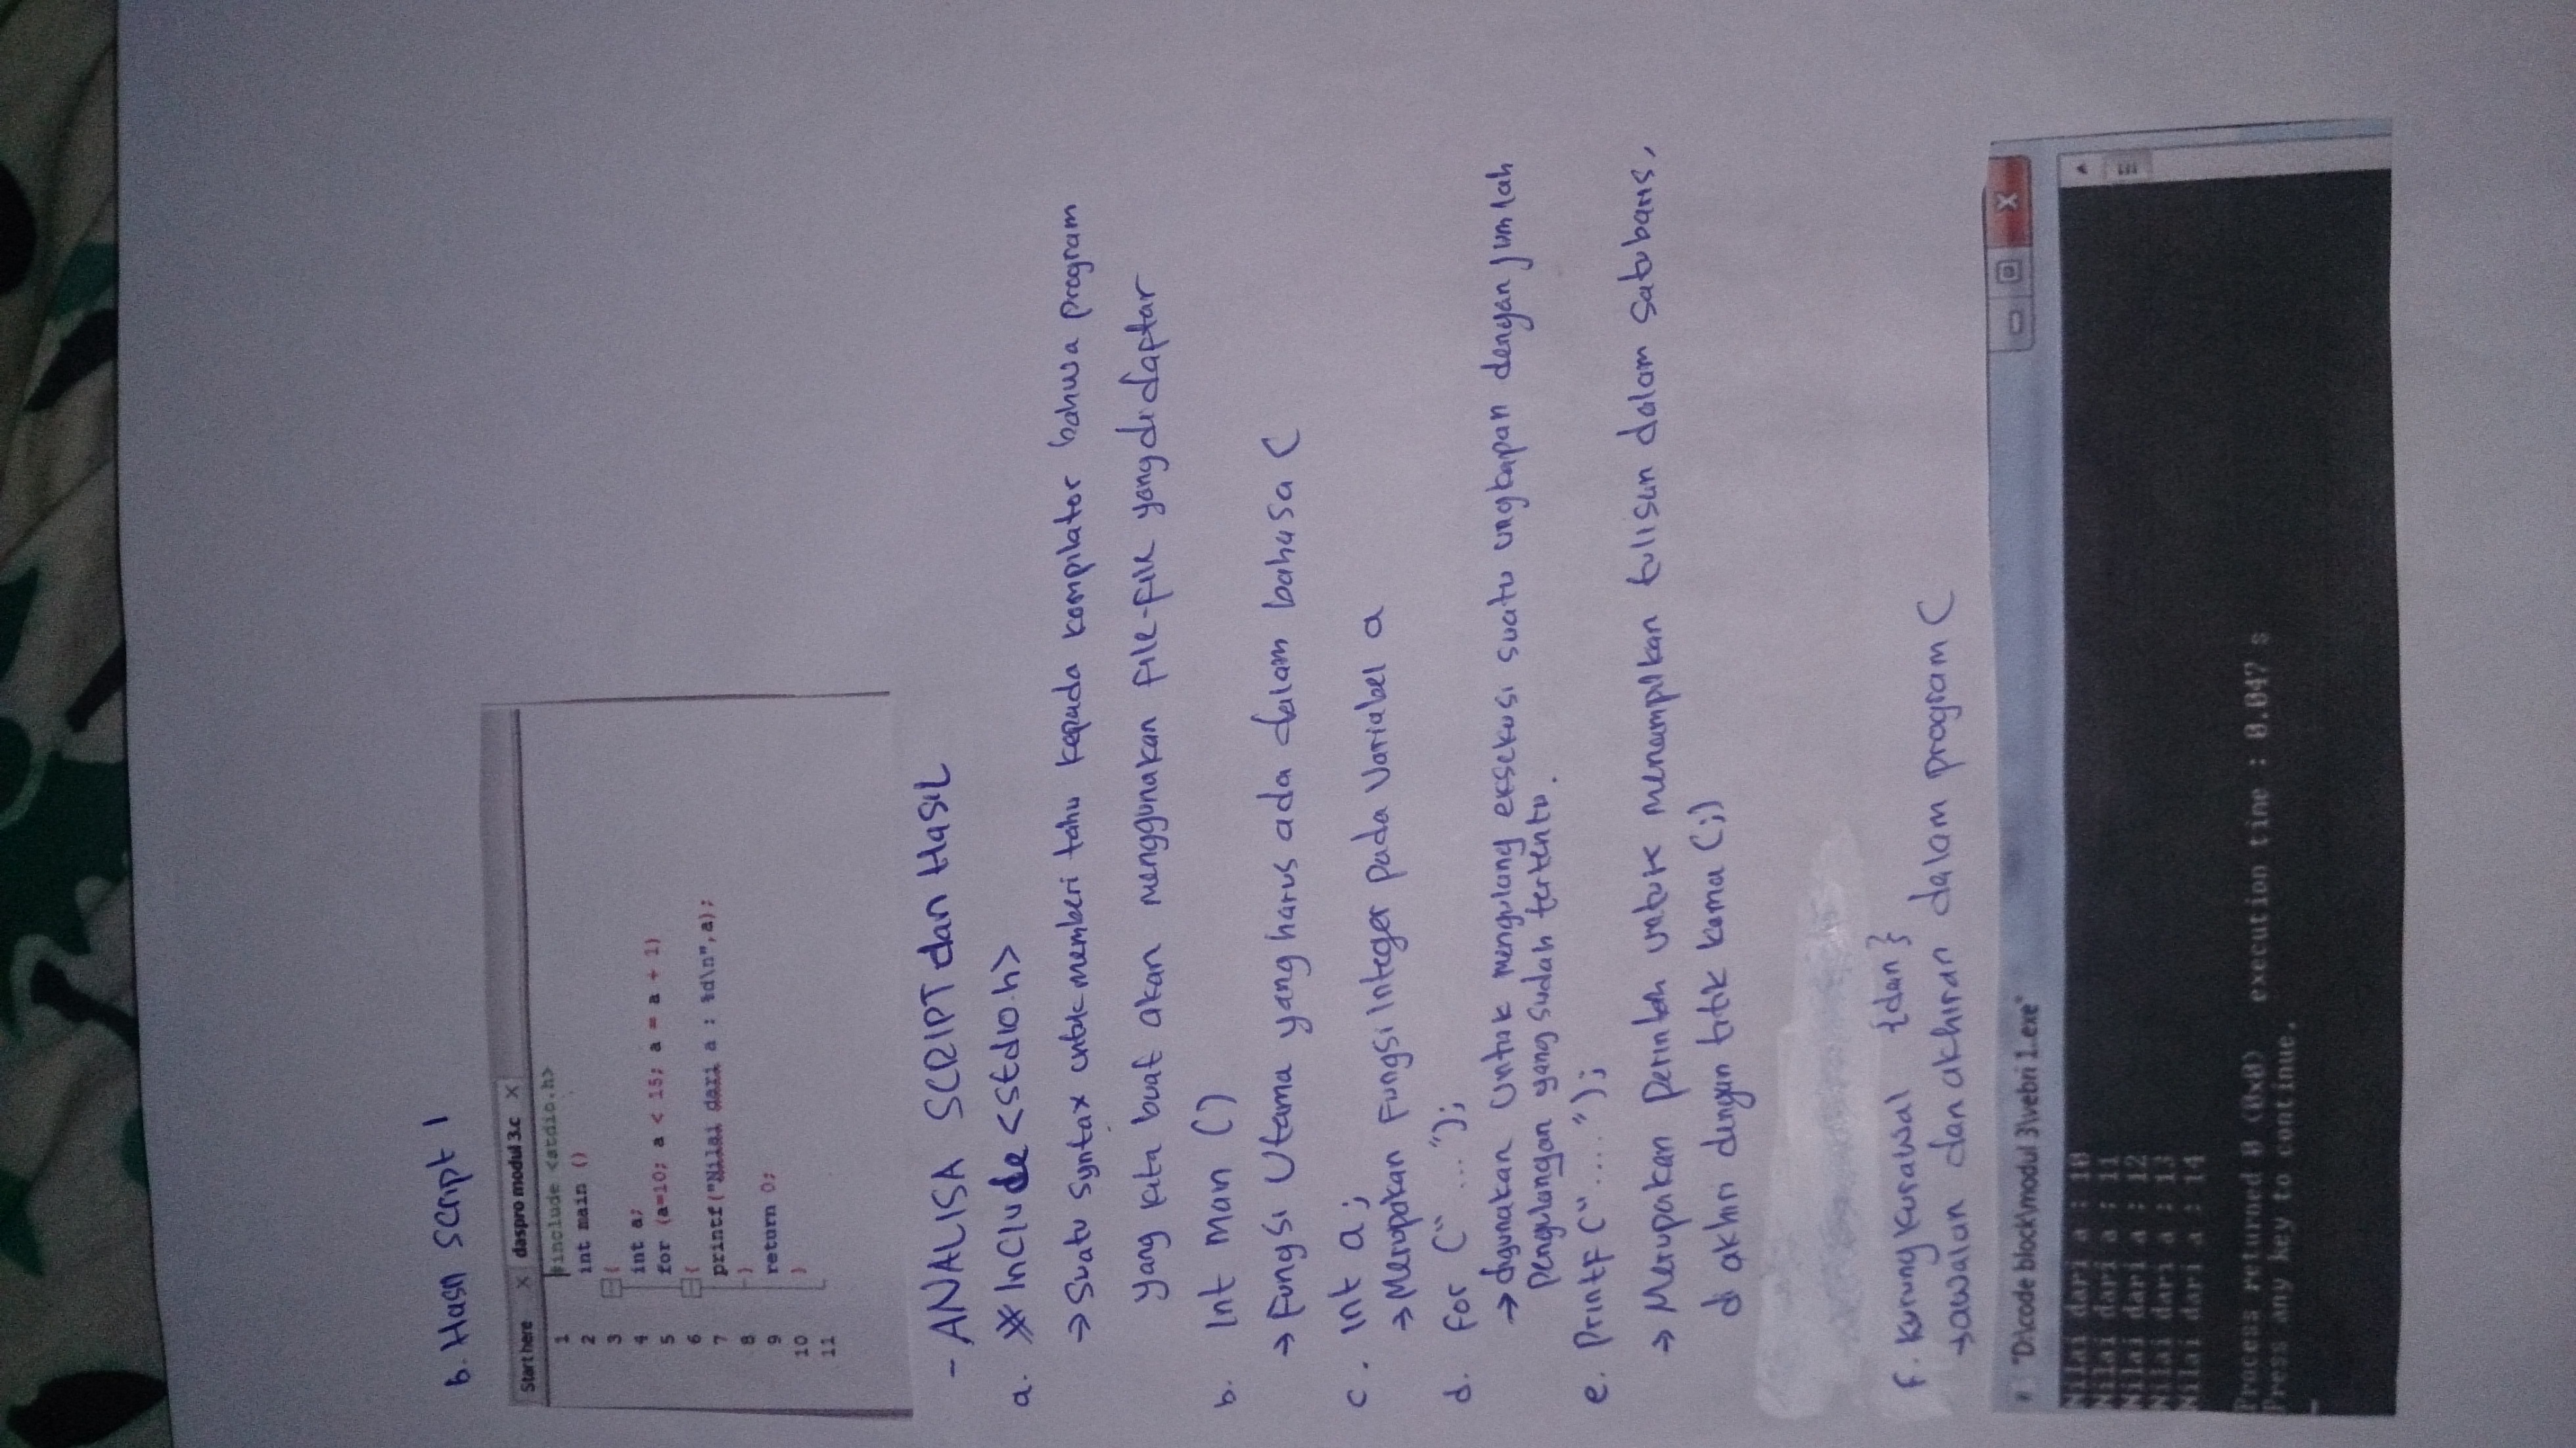 b. Hasil Script 1
Start here X daspro modul 3.c X
1 #include <stdio.h>
2 int main ()
3 {
4 int a;
5 for (a=10; a < 15; a = a + 1)
6 {
7 printf("Nilai dari a : %d\n",a);
8 }
9 return 0;
10 }
11
- ANALISA SCRIPT dan HASIL
a. #Include <stdio.h>
→ Suatu Syntax untuk memberi tahu kepada kompilator bahwa program
yang kita buat akan menggunakan file-file yang didaftar
b. Int main ()
→ Fungsi Utama yang harus ada dalam bahasa C
c. Int a;
→ Merupakan Fungsi Integer pada Variabel a
d. for (" ... ");
→ digunakan untuk mengulang eksekusi suatu ungkapan dengan jumlah
pengulangan yang sudah tertentu.
e. Printf (" .... ");
→ Merupakan perintah untuk menampilkan tulisan dalam satu baris,
di akhiri dengan titik koma (;)
f. Kurung kurawal {dan}
→ awalan dan akhiran dalam program C
"D:\code block\modul 3\vebri 1.exe"
Nilai dari a : 10
Nilai dari a : 11
Nilai dari a : 12
Nilai dari a : 13
Nilai dari a : 14
Process returned 0 (0x0) execution time : 0.047 s
Press any key to continue.